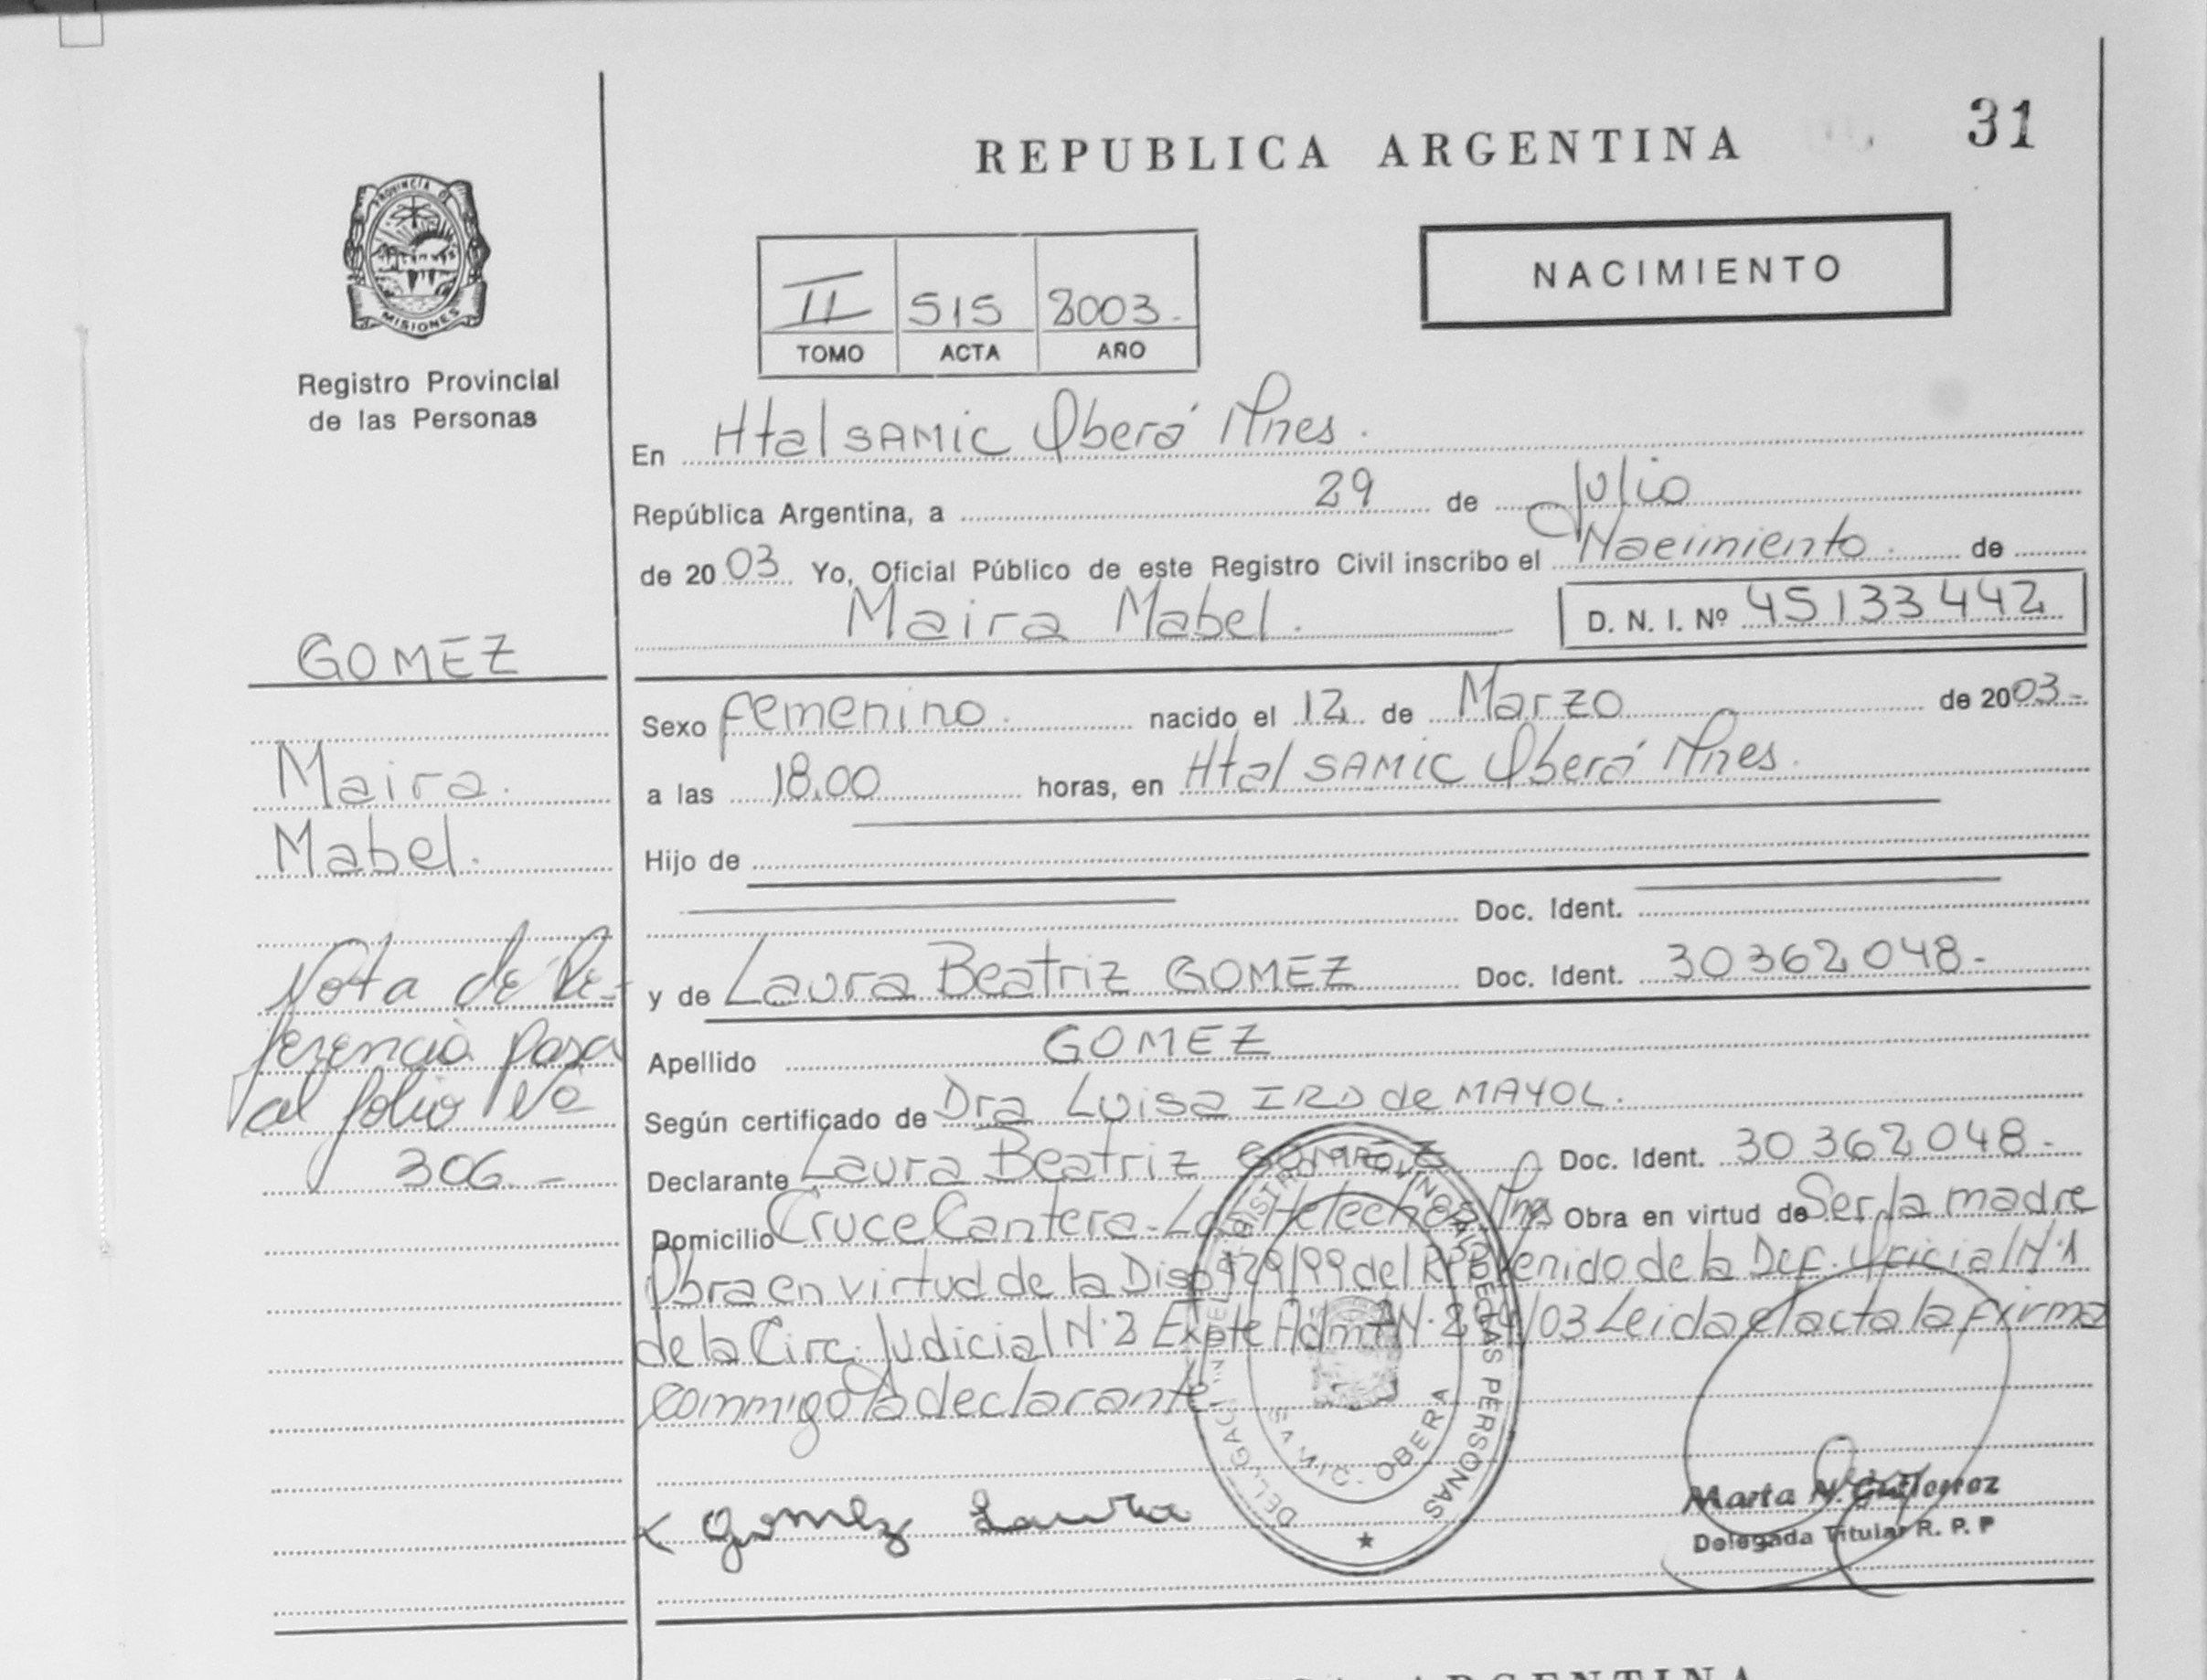 REPUBLICA ARGENTINA
31
PROVINCIA DE
MISIONES
Registro Provincial
de las Personas
NACIMIENTO
II 515 2003.
TOMO ACTA AÑO
En Htal SAMIC Oberá Mnes.
República Argentina, a 29 de Julio
de 2003 Yo, Oficial Público de este Registro Civil inscribo el Nacimiento de
Maira Mabel. D. N. I. Nº 45133442
GOMEZ
Maira
Mabel.
Nota de Re-
ferencia pasa
al folio Nº
306.-
Sexo femenino. nacido el 12 de Marzo de 2003.-
a las 18.00 horas, en Htal SAMIC Oberá Mnes.
Hijo de
Doc. Ident.
y de Laura Beatriz GOMEZ Doc. Ident. 30362048-
Apellido GOMEZ
Según certificado de Dra Luisa de MAYOL.
Declarante Laura Beatriz GOMEZ Doc. Ident. 30362048-
Domicilio Cruce Cantera-Los Helechos Mns Obra en virtud de Ser la madre
Obra en virtud de la Disp 929/99 del RPP Venido de la Def. Oficial Nº1
de la Circ. Judicial Nº2 Expte Admt Nº /03 Leida el acta la firma
conmigo la declarante
Gomez Laura
DELEGACI
PERSONAS
SAMIC - OBERA
Marta N. Gutierrez
Delegada Titular R. P. P
ARGENTINA